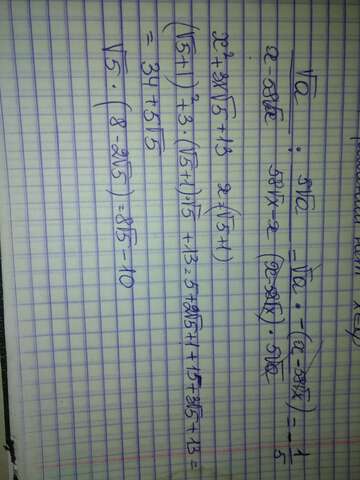 √a / (a - 58√x) : 5√a / (58√x - a) = √a · -(a - 58√x) / (a - 58√x) · 5√a = - 1/5
x² + 3x√5 + 13 x = (√5+1)
(√5+1)² + 3 · (√5+1) · √5 + 13 = 5 + 2√5 + 1 + 15 + 3√5 + 13 =
= 34 + 5√5
√5 · (8 - 2√5) = 8√5 - 10